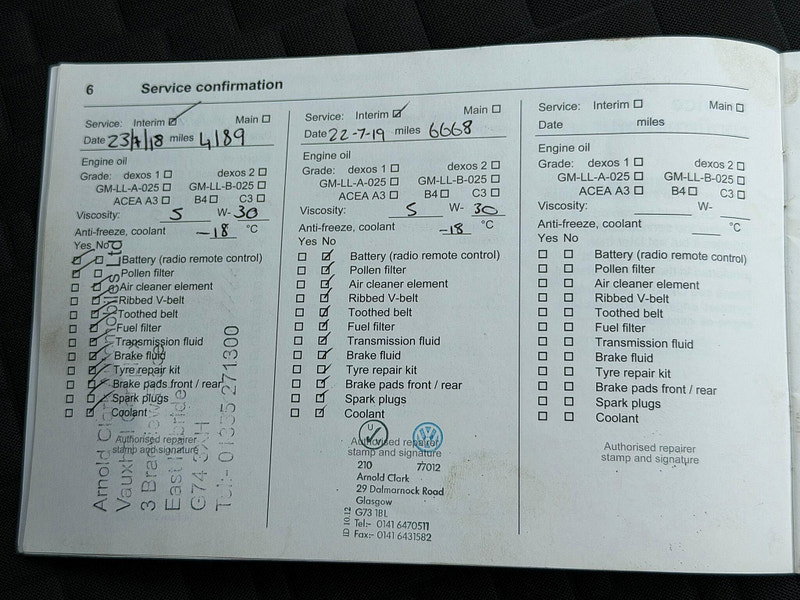 6 Service confirmation
Service: Interim Main
Date 23/7/18 miles 4189
Engine oil
Grade: dexos 1 dexos 2
GM-LL-A-025 GM-LL-B-025
ACEA A3 B4 C3
Viscosity: 5 W- 30
Anti-freeze, coolant -18 °C
Yes No
Battery (radio remote control)
Pollen filter
Air cleaner element
Ribbed V-belt
Toothed belt
Fuel filter
Transmission fluid
Brake fluid
Tyre repair kit
Brake pads front / rear
Spark plugs
Coolant
Authorised repairer
stamp and signature
Arnold Clark Automobiles Ltd
Vauxhall
3
East Kilbride
G74
Tel:- 01355 271300
Service: Interim Main
Date 22-7-19 miles 6668
Engine oil
Grade: dexos 1 dexos 2
GM-LL-A-025 GM-LL-B-025
ACEA A3 B4 C3
Viscosity: 5 W- 30
Anti-freeze, coolant -18 °C
Yes No
Battery (radio remote control)
Pollen filter
Air cleaner element
Ribbed V-belt
Toothed belt
Fuel filter
Transmission fluid
Brake fluid
Tyre repair kit
Brake pads front / rear
Spark plugs
Coolant
U
Authorised repairer
stamp and signature
210 77012
Arnold Clark
29 Dalmarnock Road
Glasgow
G73 1BL
Tel:- 0141 6470511
Fax:- 0141 6431582
ID 10.12
Service: Interim Main
Date miles
Engine oil
Grade: dexos 1 dexos 2
GM-LL-A-025 GM-LL-B-025
ACEA A3 B4 C3
Viscosity: W-
Anti-freeze, coolant °C
Yes No
Battery (radio remote control)
Pollen filter
Air cleaner element
Ribbed V-belt
Toothed belt
Fuel filter
Transmission fluid
Brake fluid
Tyre repair kit
Brake pads front / rear
Spark plugs
Coolant
Authorised repairer
stamp and signature